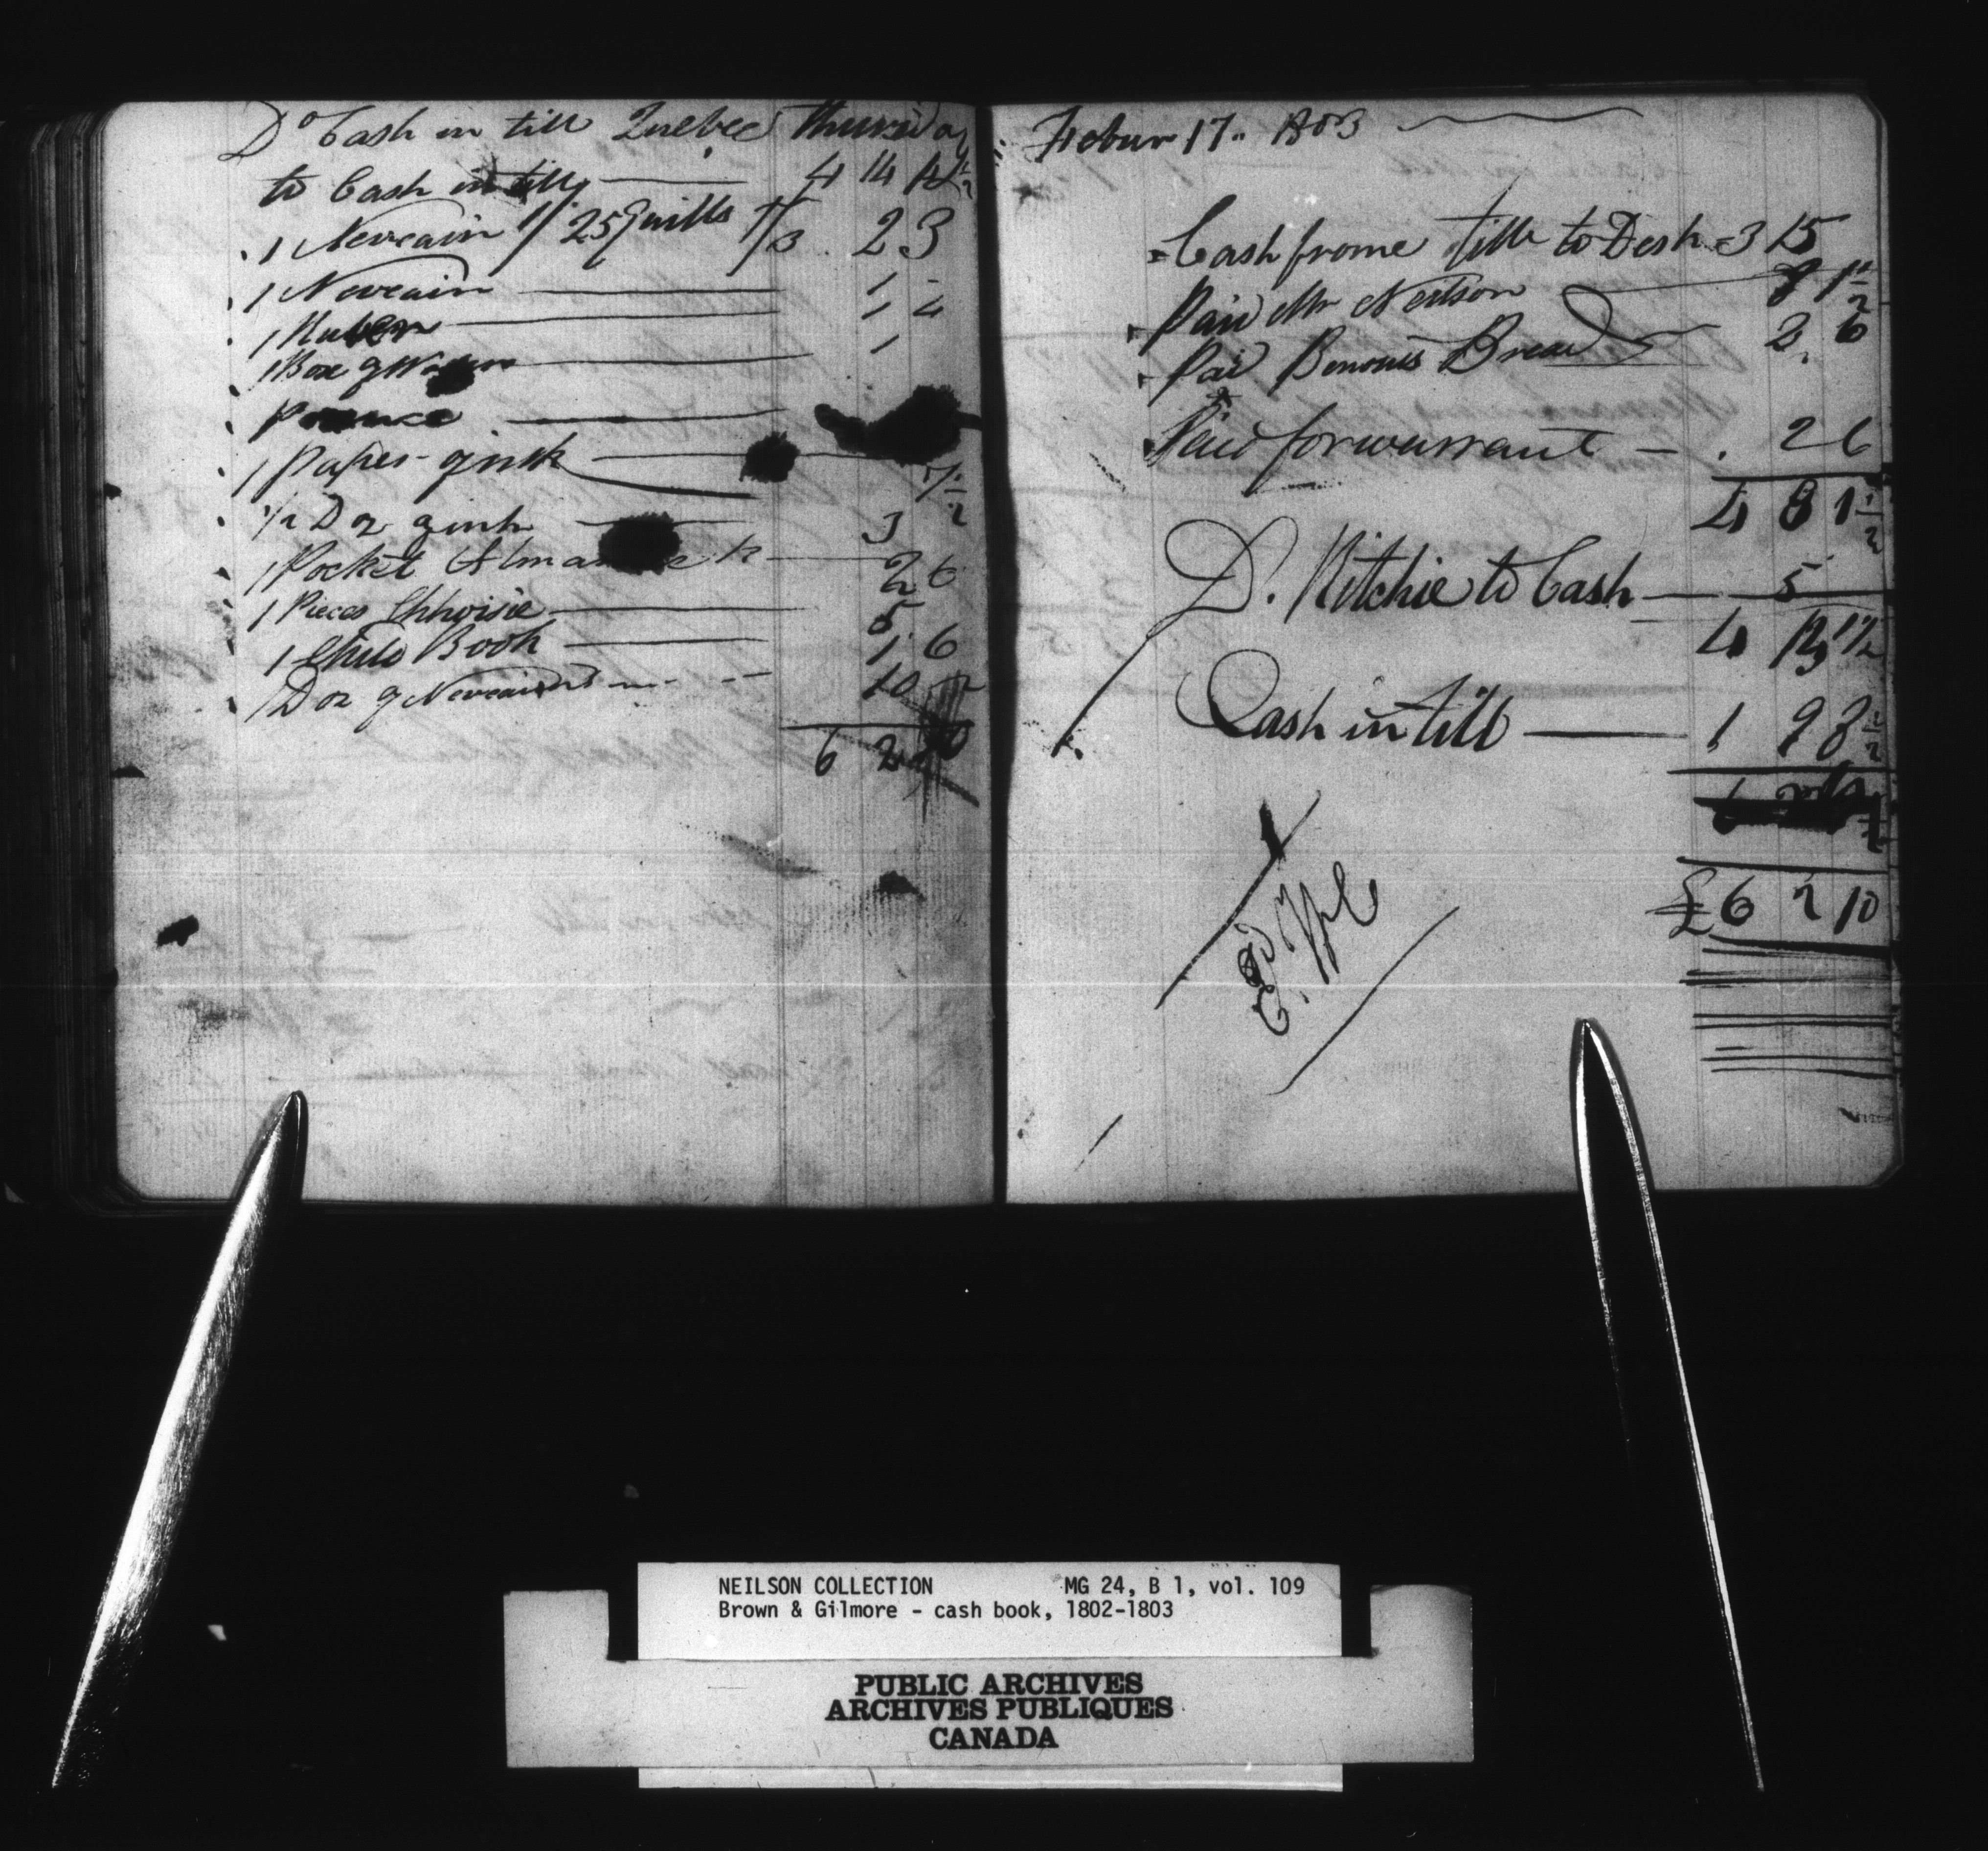 Do Cash in till Quebec Thursday
to Cash in till 4 14 4½
1 Neveain 1/ 25 Quills 1/3 2 3
1 Neveain 1 -
1 1 4
1 Box of 1
1 Paper of ink 7½
½ Doz of ink 3
1 Pocket Almanack 2 6
1 Pieces 5
1 Child Book 1 6
1 Doz of Neveains 10
6 2 10
Febur 17.. 1803
Cash frome till to Desk 3 15
Paid Mr Neilson 8 1½
Paid Benouis Bread 2 6
Paid for warrant 2 6
4 8 1½
D. Ritchie to Cash 5
4 13 1½
Cash in till 1 9 8½
£6 2 10
NEILSON COLLECTION MG 24, B 1, vol. 109
Brown & Gilmore - cash book, 1802-1803
PUBLIC ARCHIVES
ARCHIVES PUBLIQUES
CANADA